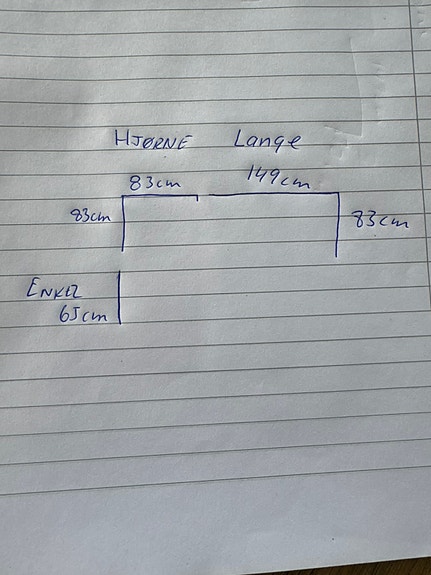 HJØRNE Lange
83cm 149cm
83cm 83cm
ENKEL
65cm